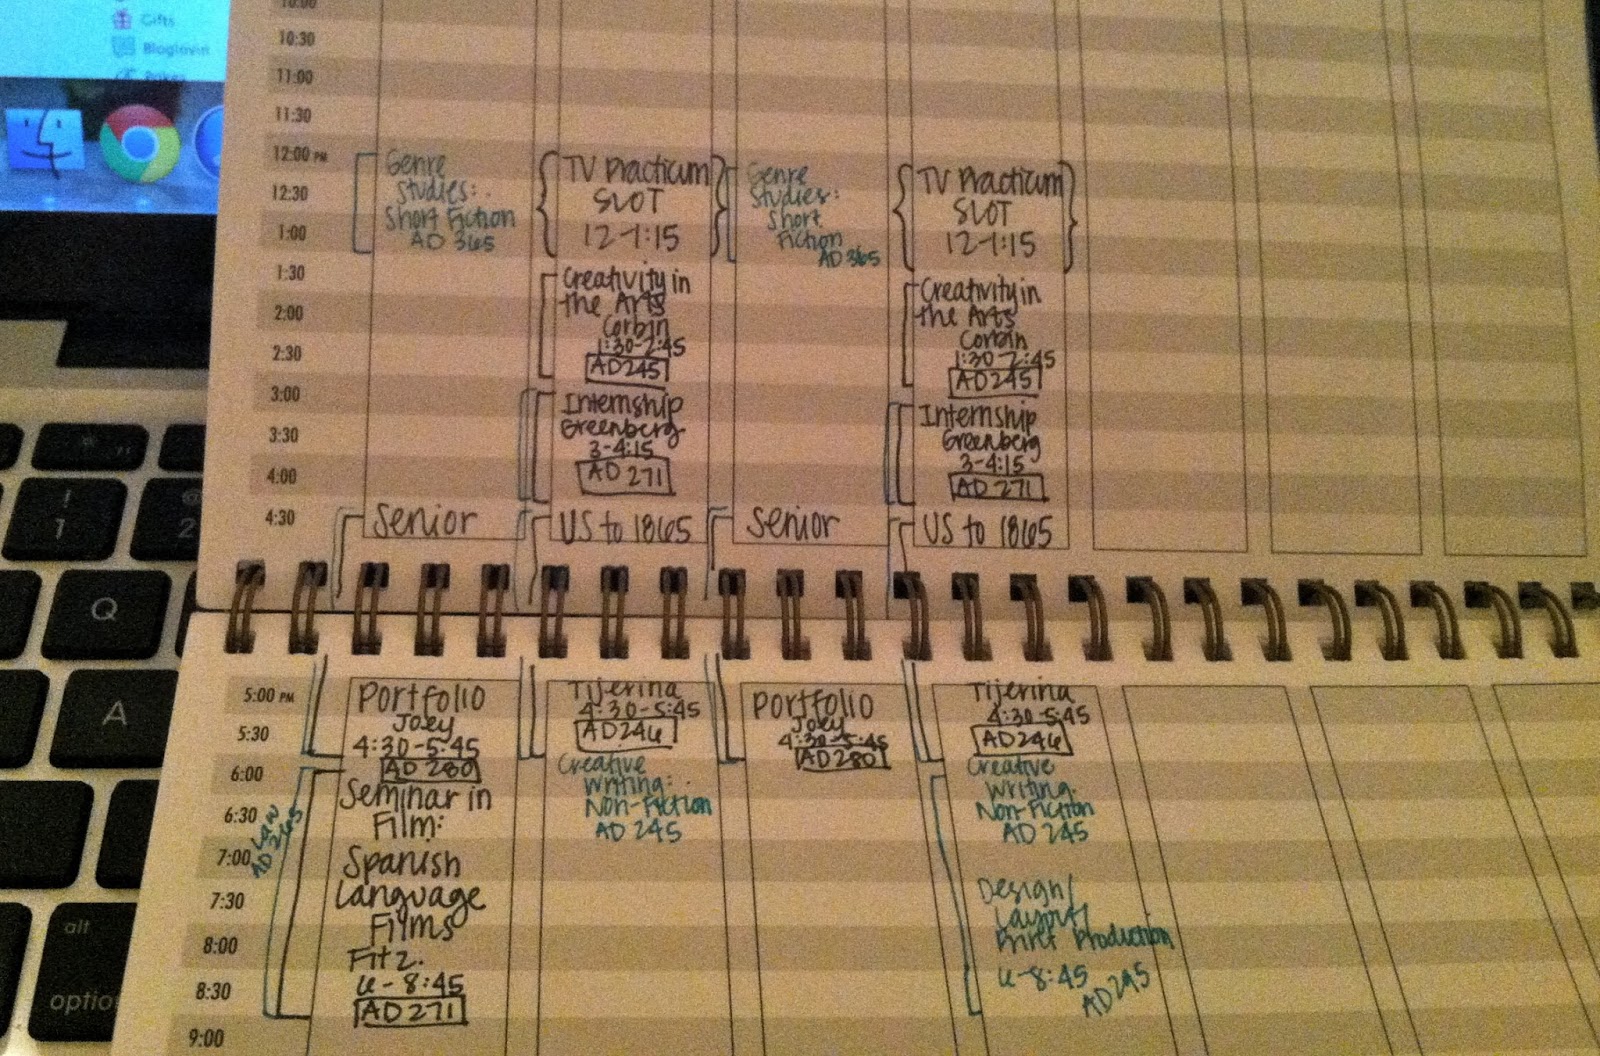 Gifts
Bloglovin
10:30
11:00
11:30
12:00 PM
12:30
1:00
1:30
2:00
2:30
3:00
3:30
4:00
4:30
Genre
Studies:
Short Fiction
AD 365
Senior
TV Practicum
SLOT
12-1:15
Creativity in
the Arts
Corbin
1:30-2:45
AD245
Internship
Greenberg
3-4:15
AD 271
US to 1865
Genre
Studies:
Short
Fiction
AD 365
Senior
TV Practicum
SLOT
12-1:15
Creativity in
the Arts
Corbin
1:30-2:45
AD245
Internship
Greenberg
3-4:15
AD 271
US to 1865
5:00 PM
5:30
6:00
6:30
7:00
7:30
8:00
8:30
9:00
Law
AD 265
Portfolio
Joey
4:30-5:45
AD 280
Seminar in
Film:
Spanish
Language
Films
Fitz.
6-8:45
AD 271
Tijerina
4:30-5:45
AD246
Creative
Writing:
Non-Fiction
AD 245
Portfolio
Joey
4:30-5:45
AD280
Tijerina
4:30-5:45
AD246
Creative
Writing:
Non-Fiction
AD 245
Design/
Layout/
Print Production
6-8:45
!
1
2
Q
A
alt
optio